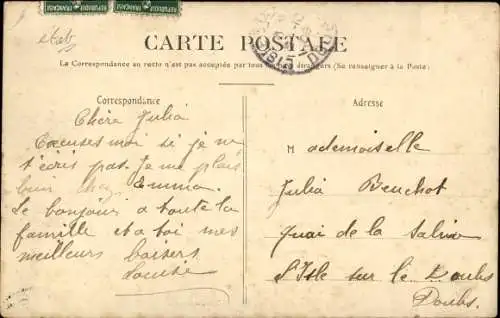 CARTE POSTALE
La Correspondance au recto n'est pas acceptée par tous pays étrangers (Se renseigner à la Poste)
Correspondance
Chère Julia
Excuses moi si je ne
t'écris pas. Je me plais
bien chez Emma.
Le bonjour a toute la
famille et a toi mes
meilleurs baisers
Louise
Adresse
Mademoiselle
Julia Beuchot
Quai de la Saline
L'Isle sur le Doubs
Doubs.